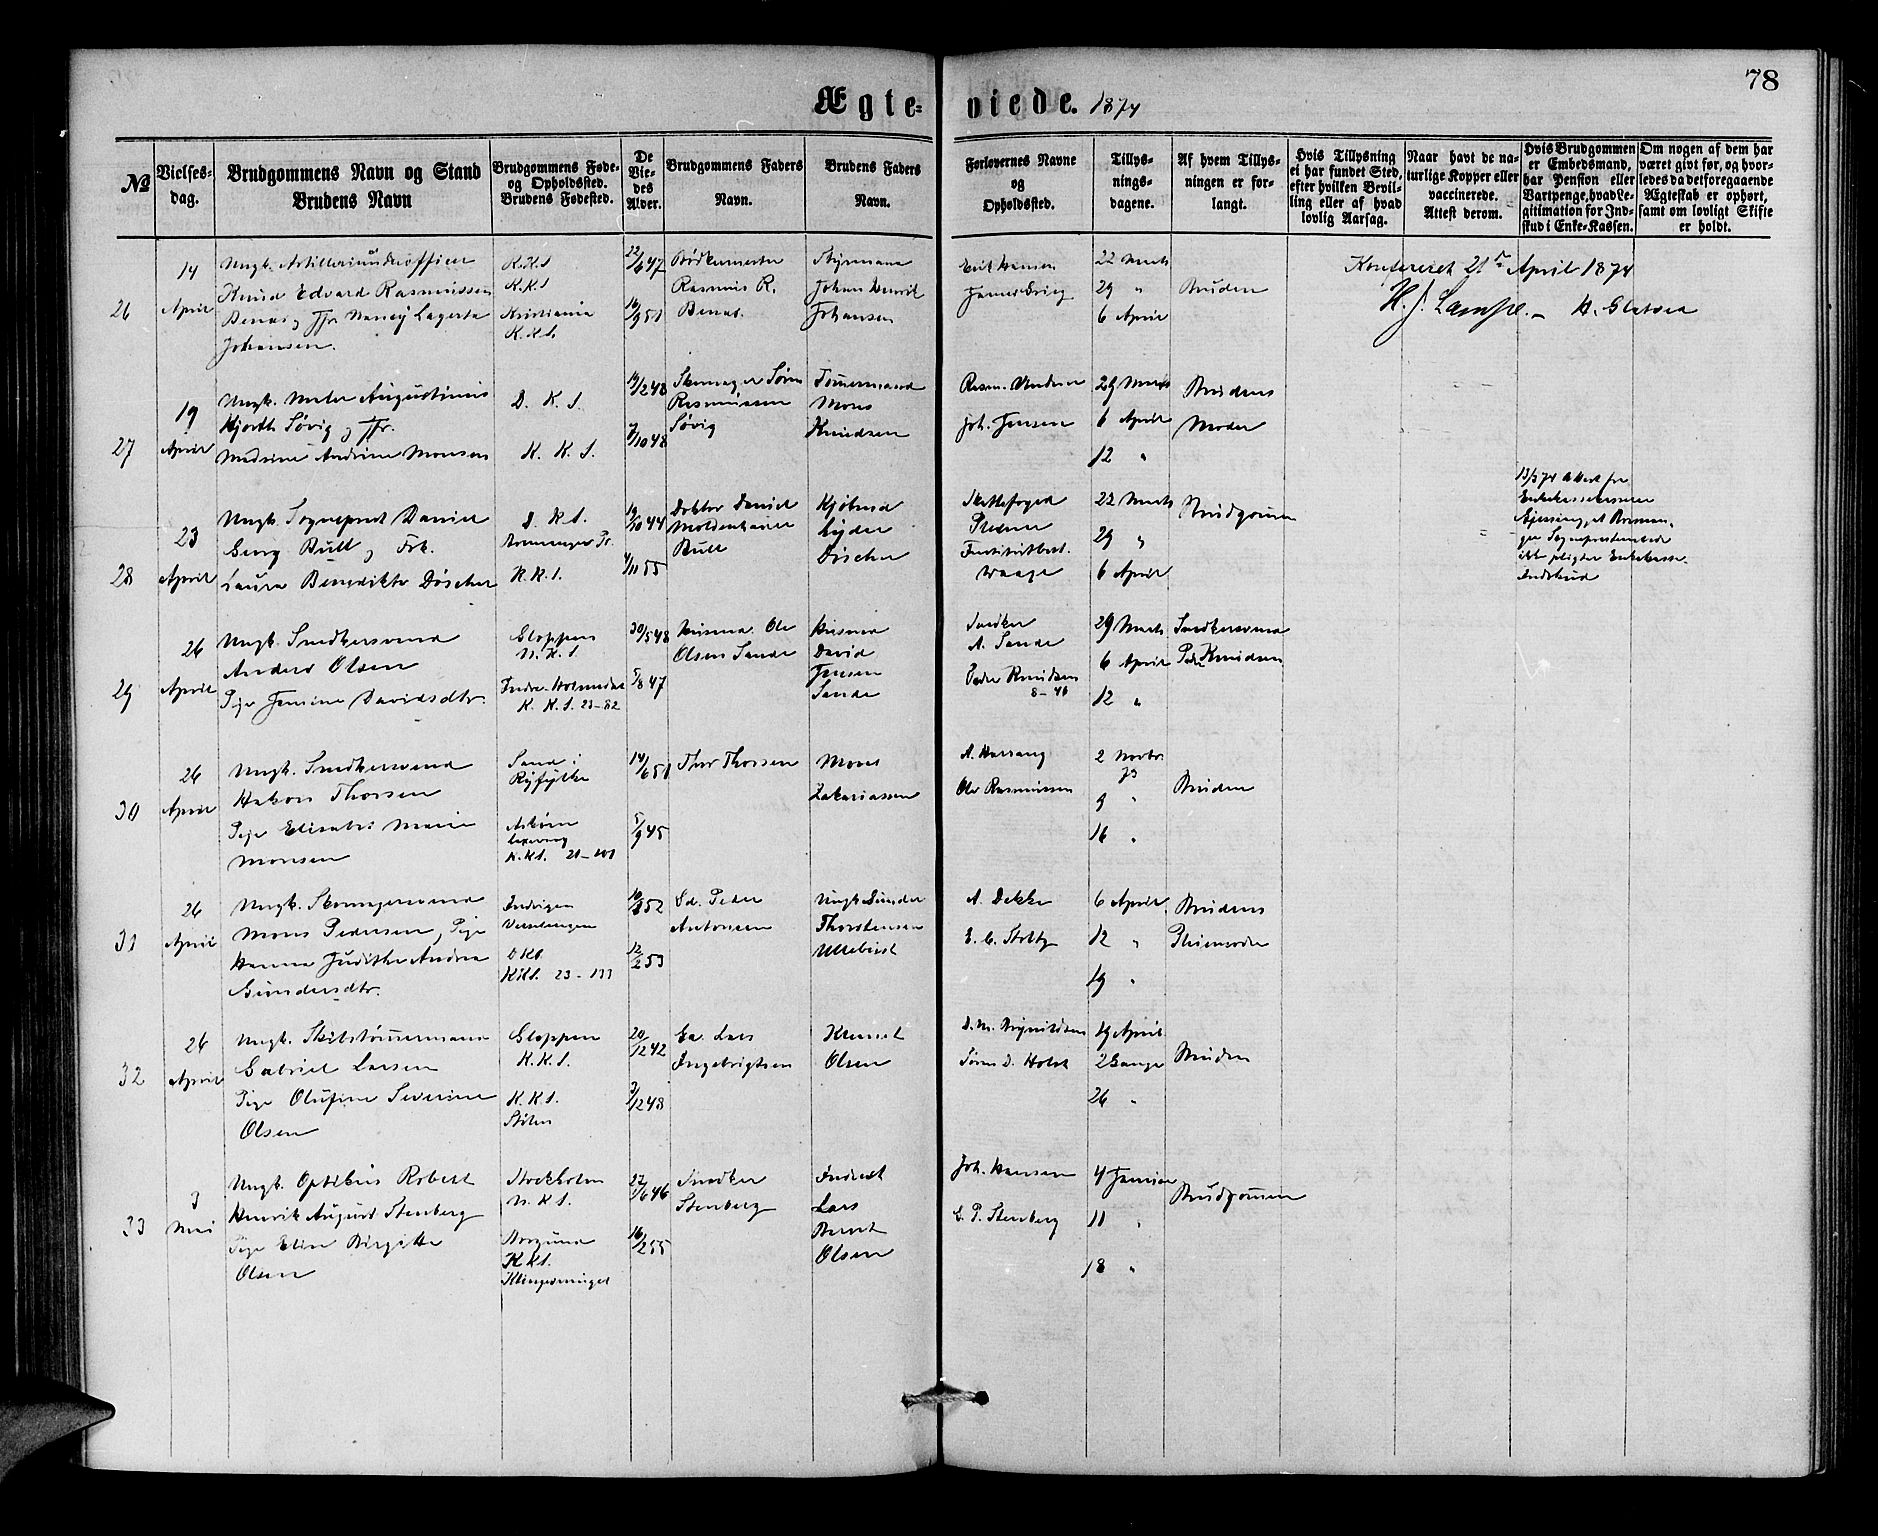 78
Ægte= viede. 1874
No
Vielses-
dag.
Brudgommens Navn og Stand
Brudens Navn
Brudgommens Føde-
og Opholdssted.
Brudens Fødested.
De
Vie-
des
Alder.
Brudgommens Faders
Navn.
Brudens Faders
Navn.
Forlovernes Navne
og
Opholdssted.
Tillys-
nings-
dagene.
Af hvem Tillys-
ningen er for-
langt.
Hvis Tillysning
ei har fundet Sted,
efter hvilken Bevil-
ling eller af hvad
lovlig Aarsag.
Naar havt de na-
turlige Kopper eller
vaccinerede.
Attest derom.
Hvis Brudgommen
er Embedsmand,
har Pension eller
Vartpenge, hvad Le-
gitimation for Ind-
skud i Enke-Kassen.
Om nogen af dem har
været givt før, og hvor-
ledes da det foregaaende
Ægteskab er ophørt,
samt om lovligt Skifte
er holdt.
26
14
April
Ungk. Artilleriunderofficer
Knud Edvard Rasmussen
Benas, Jfr. Nancy Lagerta
Johansen.
K.K.S
K.K.S
Kristiania
K.K.S.
22/6 47
16/9 51
Bødkermester
Rasmus R.
Benas.
Styrmand
Johan Henrik
Johansen
Erik Hansen
22 Marts
29 "
6 April
Bruden
Konfereret 21de April 1874
H. J. Lampe. –
27
19
April
Ungk. Maler Augustinus
Hjorth Søvig og Jfr.
Madsine Andrine Monsen
D. K. S.
K. K. S.
19/2 48
7/10 48
Skomager Søren
Rasmussen
Søvig
Tømermand
Mons
Knudsen
Joh. Jensen
29 Marts
6 April
12 "
Brudens
Moder
28
23
April
Ungk. Sogneprest Daniel
Georg Bull og Frk.
Laura Benedikte Døscher
D. K. S.
K.K.S.
19/10 44
4/11 55
Doktor Daniel
Moldenhauer
Bull
Kjøbmd
Lyder
Døscher
Skattefoged
Institutbest.
Waage
22 Marts
29 "
6 April
Brudgommen
29
26
April
Ungk. Snedkersvend
Anders Olsen
Pige Jensine Davidsdtr.
Gloppen
N. K. S.
Indre-Holmedal
K. K. S. 23-82
30/5 48
5/8 47
Husmd. Ole
Olsen Sande
Husmd
David
Jensen
Sande
Snedker
A. Sande
Peder Knudsen
29 Marts
6 April
12 "
Snedkersvend
Peder Knudsen
30
26
April
Ungk. Snedkersvend
Hakon Thorsen
Pige Elisabt Marie
Monsen
Sand i
Ryfylke
Askøen
14/6 51
5/9 45
Thor Thorsen
Mons
Zakariassen
Ole Rasmussen
2 Novbr.
73
9 "
16 "
Bruden
31
26
April
Ungk. Skomagersvend
Mons Pedersen, Pige
Hanna Judithe Andrea
Gundersdtr.
Indvigen
DKS
KKS. 23-133
12/2 53
Gd. Peder
Antonsen
Ungk. Gunder
Thorstensen
A. Dekke
E. C. Stoltz
6 April
12 "
19 "
Brudens
Pleiemoder
32
26
April
Ungk. Skibstømmermand
Gabriel Larsen
Pige Olufine Severine
Olsen
Gloppen
K.K.S.
K.K.S.
Støten
20/12 42
2/12 48
Lars
Ingebrigtsen
Olsen
Søren D. Holst
19 April
2 Gange
26 "
Bruden
33
3
Mai
Ungk. Optikus Robert
Henrik August Stenberg
Pige Eline Birgitte
Olsen
Stockholm
N. K. S.
Borgund
K.KS.
Klingesmuget
27/6 46
16/2 55
Snedker
Stenberg
Inderst
Lars
Bernt
Olsen
Joh. Hansen
C. P. Stenberg
4 Januar
11 "
18 "
Brudgommen